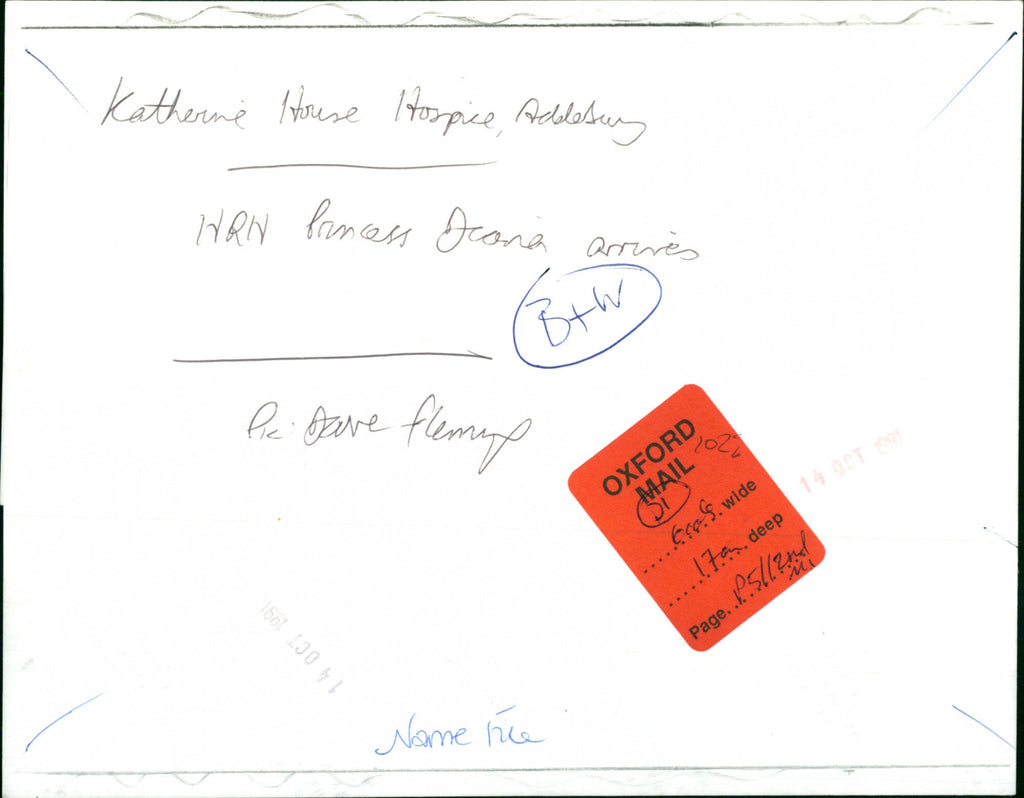 Katherine House Hospice, Adderbury
HRH Princess Diana arrives
B+W
Pic: Dave Fleming
OXFORD
MAIL
DI
wide
17cm deep
Page P5/2nd
14 OCT 1991
14 OCT 1991
Name File